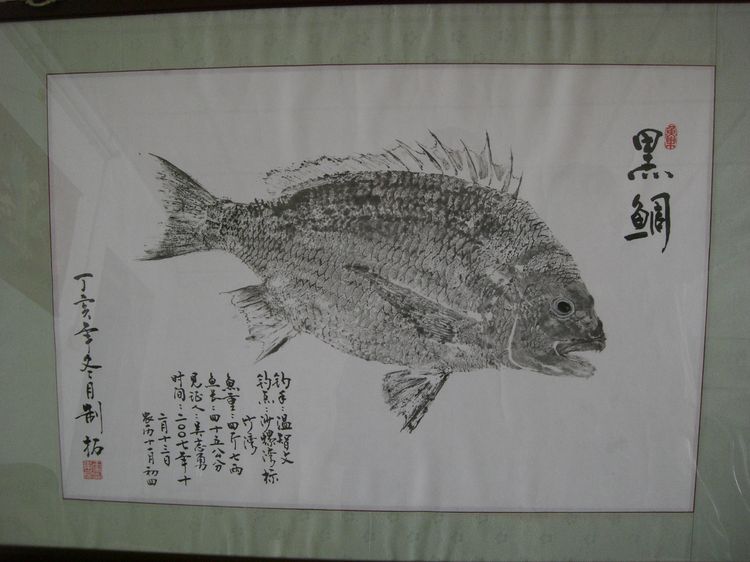 黑鲷
钓手:温智文
钓点:沙螺湾标
竹湾
魚重:四斤七两
鱼长:四十五公分
见证人:吴志勇
时间:二〇〇七年十
二月十三日
农历十一月初四
丁亥年冬月制拓